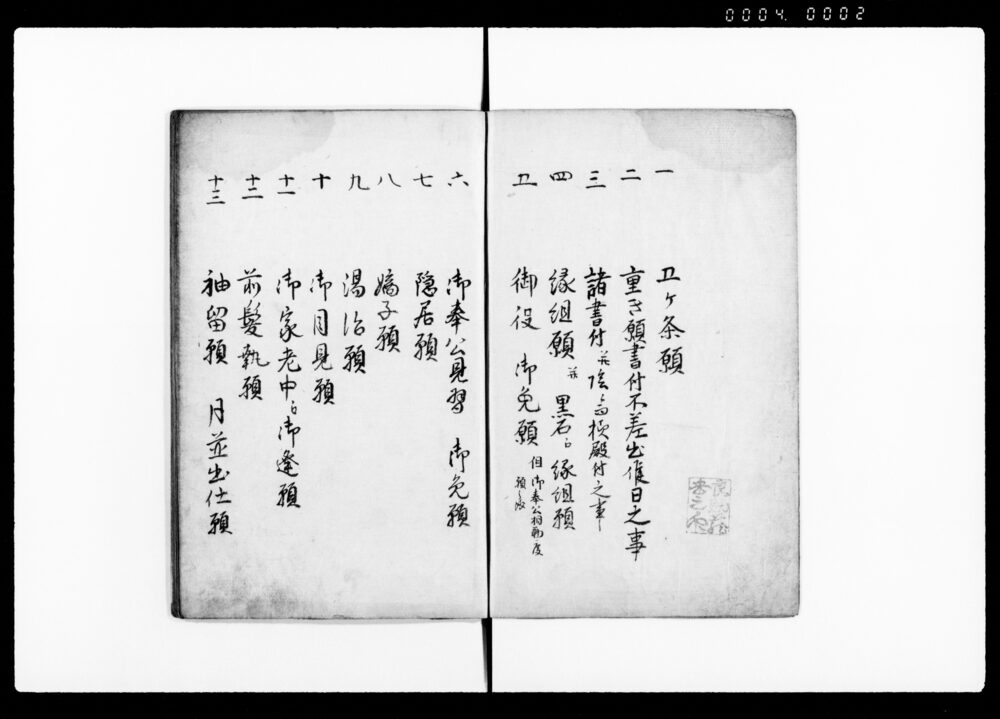 0004. 0002
一 五ヶ条願
二 重き願書付不差出候日之事
三 諸書付并 殿付之事
四 縁組願并黒石江縁組願
五 御役 御免願 但御奉公相勤度願
六 御奉公見習 御免願
七 隠居願
八 嫡子願
九 湯治願
十 御目見願
十一 御家老中江御逢願
十二 前髪執願
十三 袖留願 月並出仕願